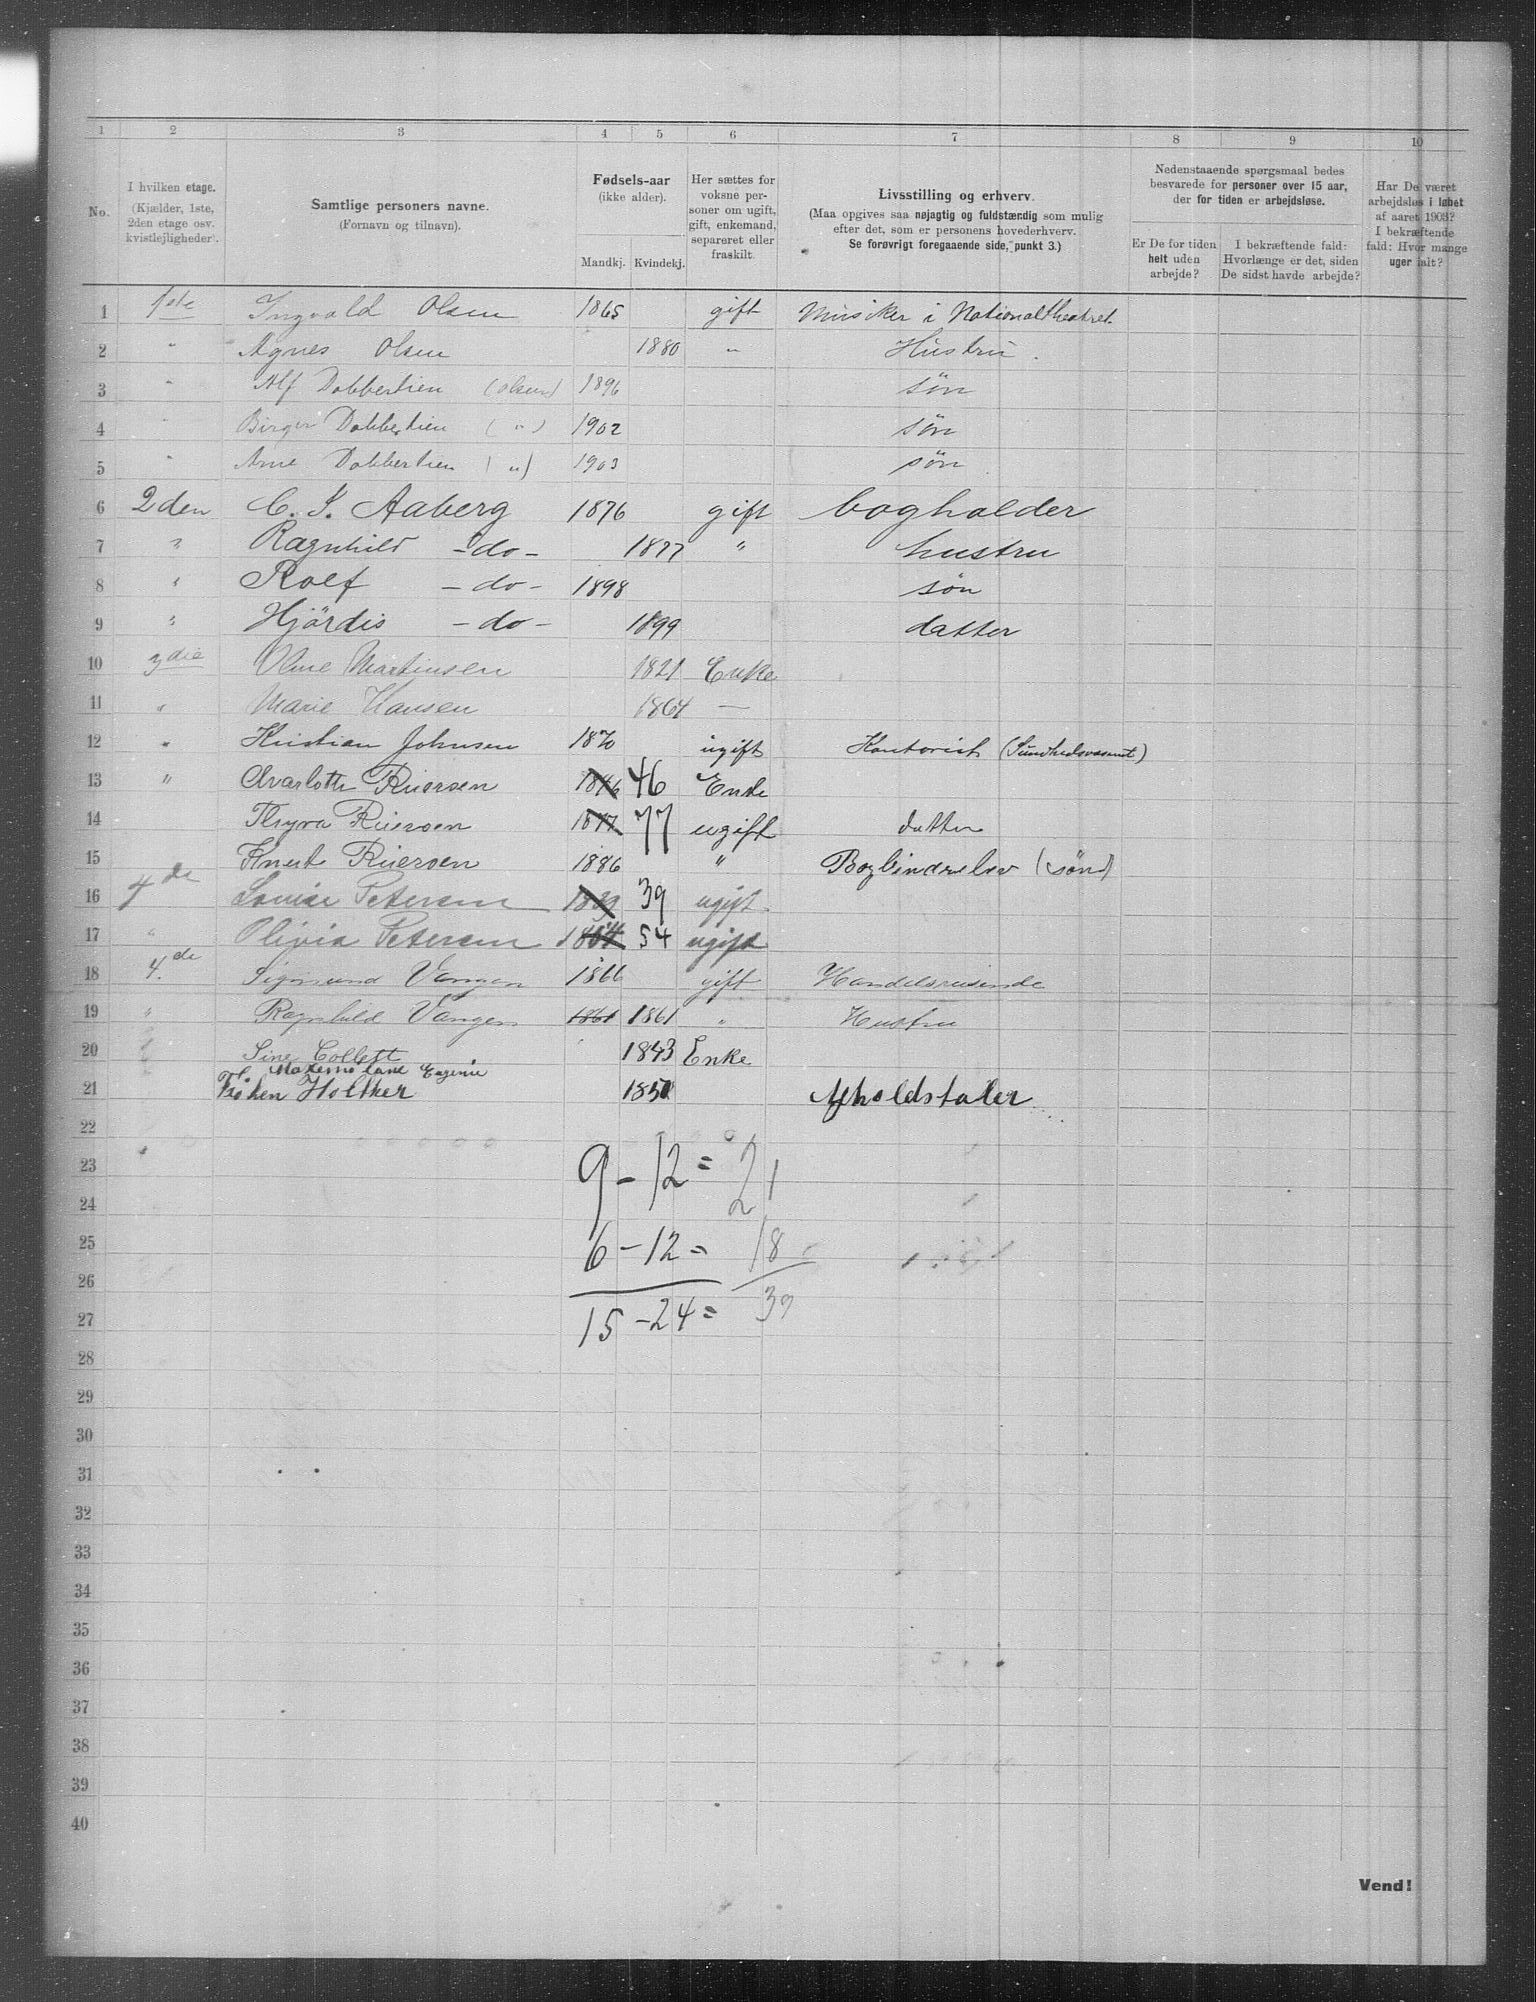 1 2 3 4 5 6 7 8 9 10
No. I hvilken etage. (Kjælder, 1ste, 2den etage osv. kvistleiligheder). Samtlige personers navne. (Fornavn og tilnavn). Fødsels-aar (ikke alder). Mandkj. Kvindekj. Her sættes for voksne personer om ugift, gift, enkemand, separeret eller fraskilt. Livsstilling og erhverv. (Maa opgives saa nøjagtig og fuldstændig som mulig efter det, som er personens hovederhverv. Se forøvrigt foregaaende side, punkt 3.) Nedenstaaende spørgsmaal bedes besvarede for personer over 15 aar, der for tiden er arbejdsløse. Er De for tiden helt uden arbejde? I bekræftende fald: Hvorlænge er det, siden De sidst havde arbejde? Har De været arbejdsløs i løbet af aaret 1903? I bekræftende fald: Hvor mange uger ialt?
1 1ste Ingvald Olsen 1865 gift Musiker i Nationaltheatret.
2 " Agnes Olsen 1880 " Hustru.
3 " Alf Dobbertien (Olsen) 1896 søn
4 " Birger Dobbertien ( " ) 1902 søn
5 " Arne Dobbertien ( " ) 1903 søn
6 2den C. I. Aaberg 1876 gift bogholder
7 " Ragnhild -do- 1877 " hustru
8 " Rolf -do- 1898 søn
9 " Hjördis -do- 1899 datter
10 3die Oline Martinsen 1821 Enke
11 " Marie Hansen 1864 —
12 " Kristian Johnsen 1870 ugift Kontorist (Sundhedsvæsenet)
13 " Charlotte Riiersen 1846 46 Enke
14 Thyra Riiersen 1877 77 ugift datter
15 Knut Riiersen 1886 " Bogbinderelev (søn)
16 4de Louise Petersen 1839 39 ugift
17 " Olivia Petersen 1854 54 ugift
18 4.de Sigmund Vangen 1866 gift Handelsreisende
19 " Ragnhild Vangen 1861 1861 " Hustru
20 Sine Collett 1843 Enke
Eugenie
21 Frøken Holther 1850 Afholdstaler
22
23 9 - 12 = 21
24
25 6 - 12 = 18
26
27 15 - 24 = 39
28
29
30
31
32
33
34
35
36
37
38
39
40
Vend!